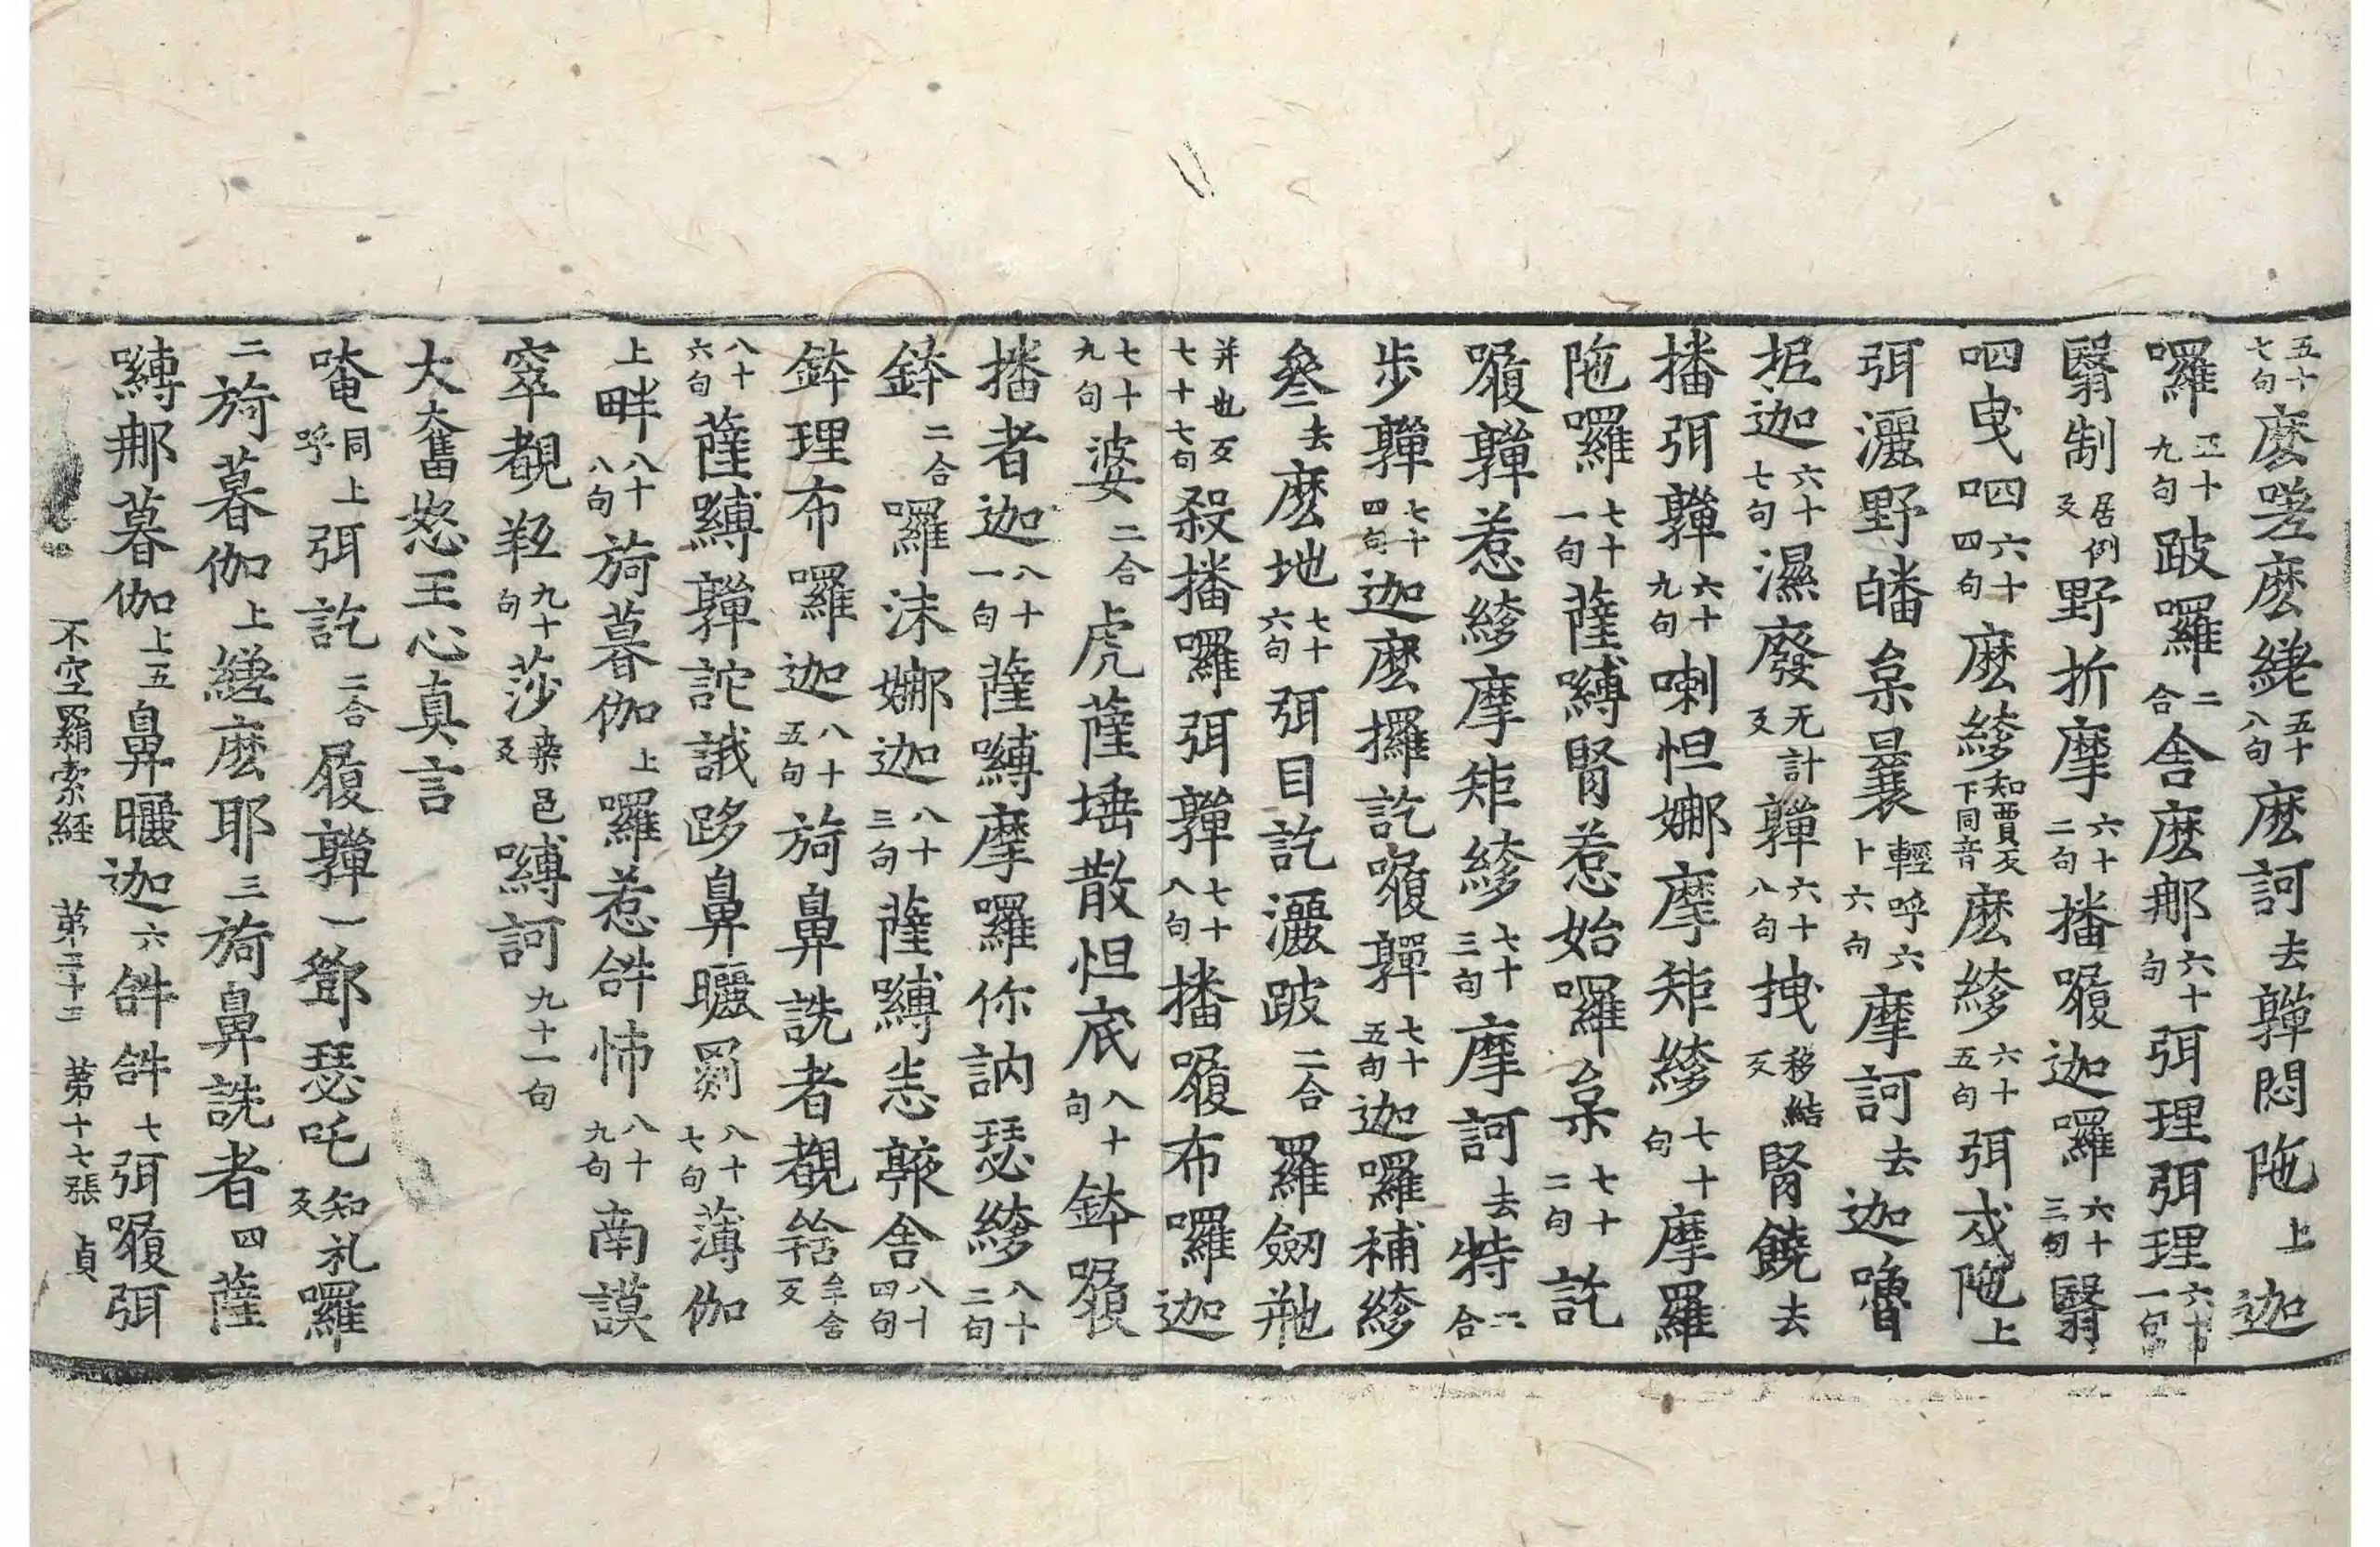 五十七句麽㘄麽纆五十八句麽訶去㲉悶陁上迦
囉五十九句跛囉二合舍麽那六十句弭理弭理六十一句
翳制居例反野折摩六十二句播履迦囉三句六十翳
呬曳呬六十四句麽絳知賈反下同音麽絳六十五句弭戍陁上
弭灑野皤枲曩輕呼六十六句摩訶去迦嚕
抳迦六十七句濕廢无計反㲉六十八句拽移結反腎饒去
播弭㲉六十九句喇怛娜摩矩絳七十句摩羅
陁囉七十一句薩嚩腎惹始囉枲七十二句訖
㗚㲉惹絳摩矩絳七十三句摩訶去特二合
步㲉七十四句迦麽攞訖㗚㲉七十五句迦囉補絳
叄去麽地七十六句弭目訖灑跛二合羅劒
并也反七十七句殺播囉弭㲉七十八句播㗚布囉迦
七十九句婆二合虎薩埵散怛底八十句鉢㗚
播者迦八十一句薩嚩摩囉你訥瑟絳八十二句
鉢二合囉沬娜迦八十三句薩嚩恙㰠舍八十四句
鉢理布囉迦八十五句旖鼻詵者覩䇢牟舍反
八十六句薩嚩㲉詑誐跢鼻曬罽八十七句薄伽
上畔八十八句旖暮伽上囉惹𤙖怖八十九句南謨
窣覩羝九十句莎桒邑反嚩訶九十一句
大奮怒王心真言
唵同上呼弭訖二合履㲉一鄧瑟吒知礼反囉
二旖暮伽上縒麽耶三旖鼻詵者四薩
嚩那暮伽上五鼻曬迦六𤙖𤙖七弭㗚弭
不空羂索経　苐二十二　苐十七張　貞